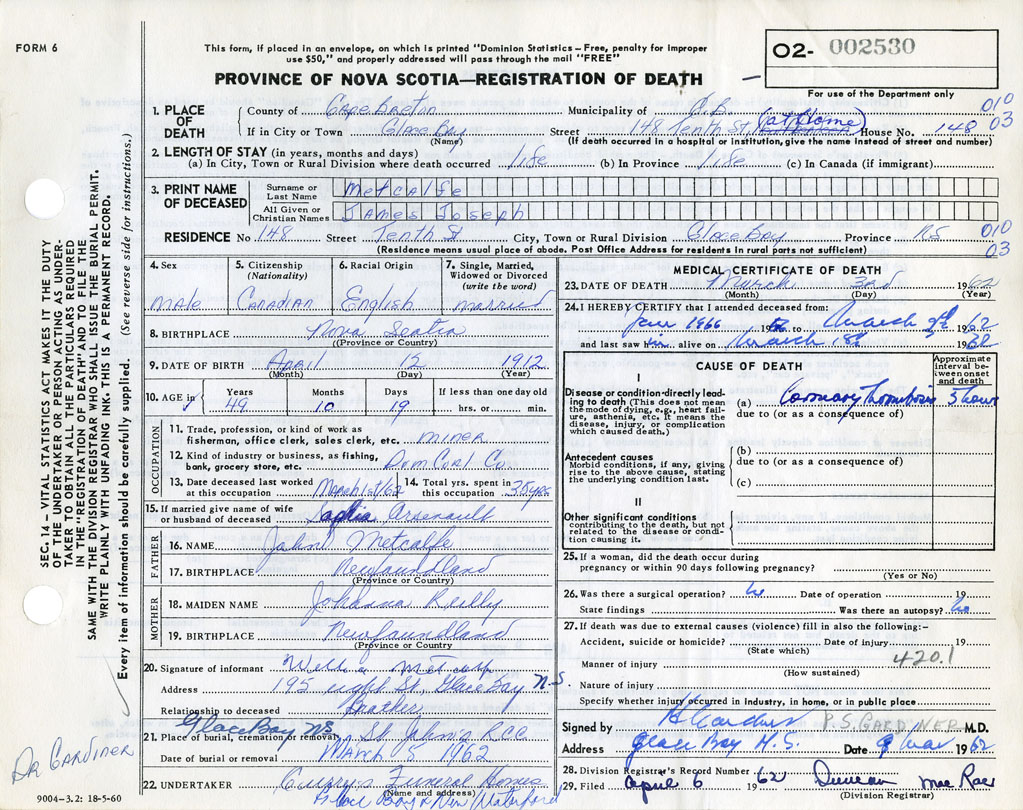 FORM 6
This form, if placed in an envelope, on which is printed "Dominion Statistics – Free, penalty for improper
use $50," and properly addressed will pass through the mail "FREE"
PROVINCE OF NOVA SCOTIA—REGISTRATION OF DEATH
02- 002530
For use of the Department only
1. PLACE OF DEATH
County of Cape Breton Municipality of C.B. 010
If in City or Town Glace Bay Street 148 Tenth St. (at Home) House No. 148 03
(Name) (If death occurred in a hospital or institution, give the name instead of street and number)
2. LENGTH OF STAY (in years, months and days)
(a) In City, Town or Rural Division where death occurred life (b) In Province life (c) In Canada (if immigrant)
3. PRINT NAME OF DECEASED
Surname or Last Name Metcalfe
All Given or Christian Names James Joseph
RESIDENCE No 148 Street Tenth St City, Town or Rural Division Glace Bay Province NS 010
(Residence means usual place of abode. Post Office Address for residents in rural parts not sufficient) 03
4. Sex 5. Citizenship (Nationality) 6. Racial Origin 7. Single, Married, Widowed or Divorced (write the word)
Male Canadian English Married
8. BIRTHPLACE Nova Scotia
(Province or Country)
9. DATE OF BIRTH April 12 1912
(Month) (Day) (Year)
10. AGE in Years Months Days If less than one day old
49 10 19 hrs. or min.
OCCUPATION
11. Trade, profession, or kind of work as
fisherman, office clerk, sales clerk, etc. miner
12. Kind of industry or business, as fishing,
bank, grocery store, etc. Dom Coal Co
13. Date deceased last worked
at this occupation March 1st/62
14. Total yrs. spent in
this occupation 35 yrs
15. If married give name of wife
or husband of deceased Arsenault
FATHER
16. NAME John Metcalfe
17. BIRTHPLACE Newfoundland
(Province or Country)
MOTHER
18. MAIDEN NAME Johanna Reilly
19. BIRTHPLACE Newfoundland
(Province or Country)
20. Signature of informant
Address 195 St., Glace Bay N.S.
Relationship to deceased Brother
Glace Bay NS
21. Place of burial, cremation or removal St John's
Date of burial or removal March 5 1962
22. UNDERTAKER Curry's Funeral Homes
(Name and address)
Glace Bay & New Waterford
9004-3.2: 18-5-60
SEC. 14 – VITAL STATISTICS ACT MAKES IT THE DUTY
OF THE UNDERTAKER OR PERSON ACTING AS UNDER-
TAKER TO OBTAIN ALL THE PARTICULARS REQUIRED
IN THE "REGISTRATION OF DEATH" AND TO FILE THE
SAME WITH THE DIVISION REGISTRAR WHO SHALL ISSUE THE BURIAL PERMIT.
WRITE PLAINLY WITH UNFADING INK. THIS IS A PERMANENT RECORD.
Every item of information should be carefully supplied. (See reverse side for instructions.)
DR GARDINER
MEDICAL CERTIFICATE OF DEATH
23. DATE OF DEATH March 3rd 1962
(Month) (Day) (Year)
24. I HEREBY CERTIFY that I attended deceased from:
Jan 19 to March 1962
and last saw him alive on March 1st 19
CAUSE OF DEATH
Approximate interval between onset and death
I
Disease or condition directly lead-
ing to death (This does not mean
the mode of dying, e.g., heart fail-
ure, asthenia, etc. It means the
disease, injury, or complication
which caused death.)
(a) Coronary Thrombosis 5 hours
due to (or as a consequence of)
Antecedent causes
Morbid conditions, if any, giving
rise to the above cause, stating
the underlying condition last.
(b)
due to (or as a consequence of)
(c)
II
Other significant conditions
contributing to the death, but not
related to the disease or condi-
tion causing it.
25. If a woman, did the death occur during
pregnancy or within 90 days following pregnancy?
(Yes or No)
26. Was there a surgical operation? no Date of operation 19
State findings Was there an autopsy? no
27. If death was due to external causes (violence) fill in also the following:–
Accident, suicide or homicide? Date of injury 19
(State which) 420.1
Manner of injury
(How sustained)
Nature of injury
Specify whether injury occurred in industry, in home, or in public place
Signed by P.S. GARDINER M.D.
Address Glace Bay N.S. Date 9 Mar 1962
28. Division Registrar's Record Number
29. Filed April 6 1962 Duncan MacRae
(Division Registrar)